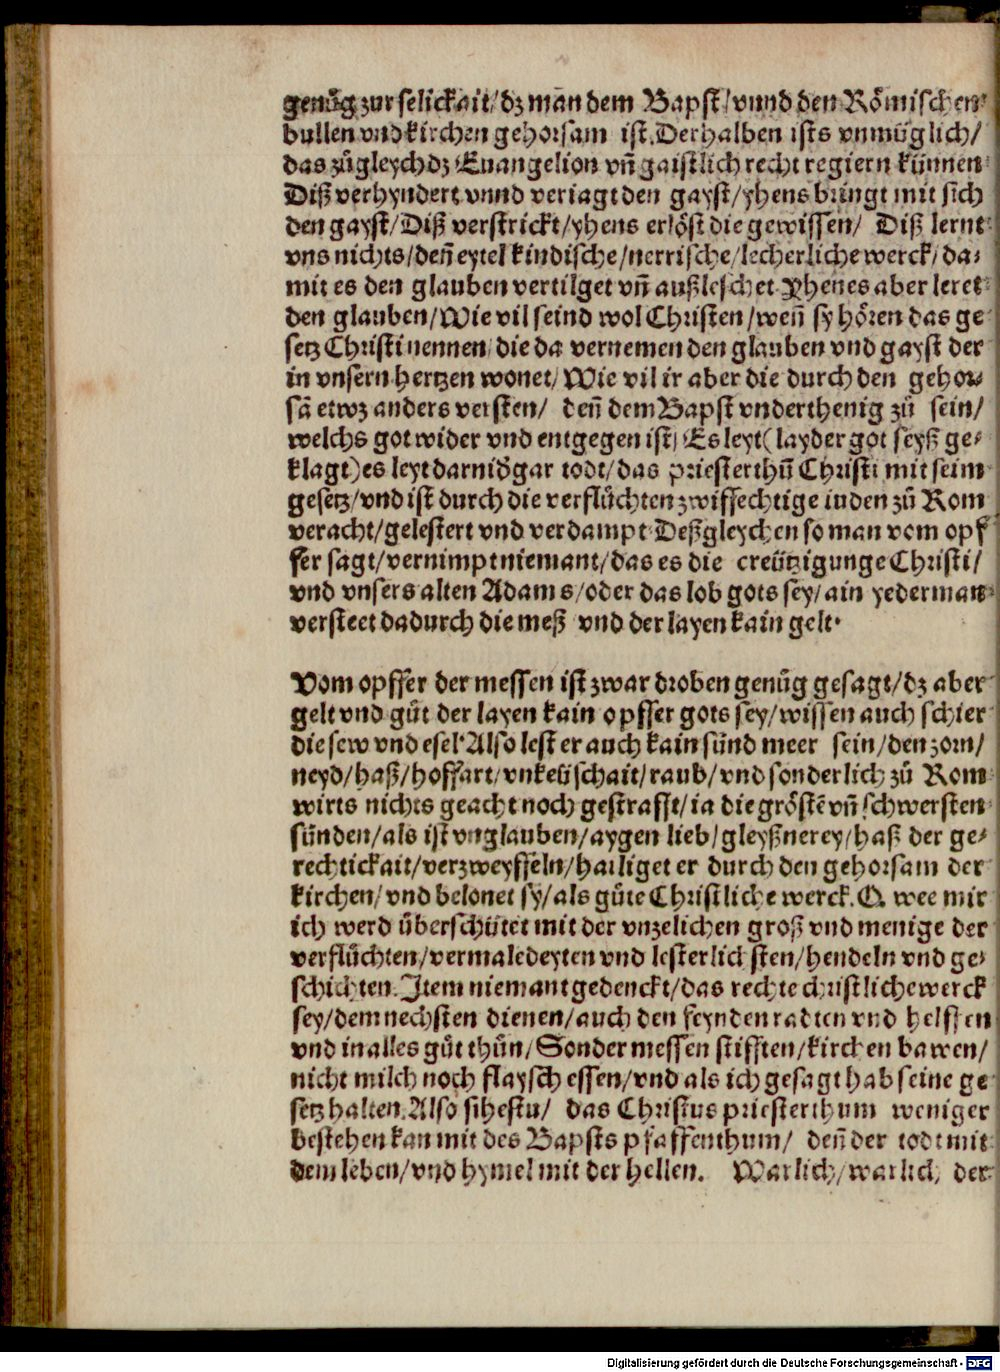 genůg zur selickait/dz man dem Bapst/vnnd den Römischen
bullen vnd kirchen gehorsam ist. Derhalben ists vnmüglich/
das zůgleych dz Euangelion vn̄ gaistlich recht regiern künnen
Diß verhyndert vnnd veriagt den gayst/yhens bringt mit sich
den gayst/Diß verstrickt/yhens erlöst die gewissen/ Diß lernt
vns nichts/den̄ eytel kindische/nerrische/lecherliche werck/da-
mit es den glauben vertilget vn̄ außleschet. Yhenes aber leret
den glauben/Wie vil seind wol Christen/wen̄ sy hören das ge
setz Christi nennen/die da vernemen den glauben vnd gayst der
in vnsern hertzen wonet/Wie vil ir aber die durch den gehor-
sā etwz anders versten/ den̄ dem Bapst vnderthenig zů sein/
welchs got wider vnd entgegen ist/ Es leyt(layder got seyß ge-
klagt)es leyt darnid̄ gar todt/das priesterthū Christi mit seim
gesetz/vnd ist durch die verflůchten zwiffechtige iuden zů Rom
veracht/gelestert vnd verdampt. Deßgleychen so man vom opf
fer sagt/vernimpt niemant/das es die creützigunge Christi/
vnd vnsers alten Adams/oder das lob gots sey/ain yederman
versteet dadurch die meß vnd der layen kain gelt.
Vom opffer der messen ist zwar droben genůg gesagt/dz aber
gelt vnd gůt der layen kain opffer gots sey/wissen auch schier
die sew vnd esel. Also lest er auch kain sünd meer sein/den zorn/
neyd/haß/hoffart/vnkeüschait/raub/vnd sonderlich zů Rom
wirts nichts geacht noch gestrafft/ia die gröstē vn̄ schwersten
sünden/als ist vnglauben/aygen lieb/gleyßnerey/haß der ge-
rechtickait/verzweyffeln/hailiget er durch den gehorsam der
kirchen/vnd belonet sy/als gůte Christliche werck. O wee mir
ich werd überschütet mit der vnzelichen groß vnd menige der
verflůchten/vermaledeyten vnd lesterlichsten/hendeln vnd ge-
schichten. Item niemant gedenckt/das rechte christliche werck
sey/dem nechsten dienen/auch den feynden radten vnd helffen
vnd in alles gůt thůn/Sonder messen stifften/kirchen bawen/
nicht milch noch flaysch essen/vnd als ich gesagt hab seine ge
setz halten. Also sihestu/ das Christus priesterthum weniger
bestehen kan mit des Bapsts pfaffenthum/ den̄ der todt mit
dem leben/vnd hymel mit der hellen. Warlich/warlich/ der
Digitalisierung gefördert durch die Deutsche Forschungsgemeinschaft - DFG